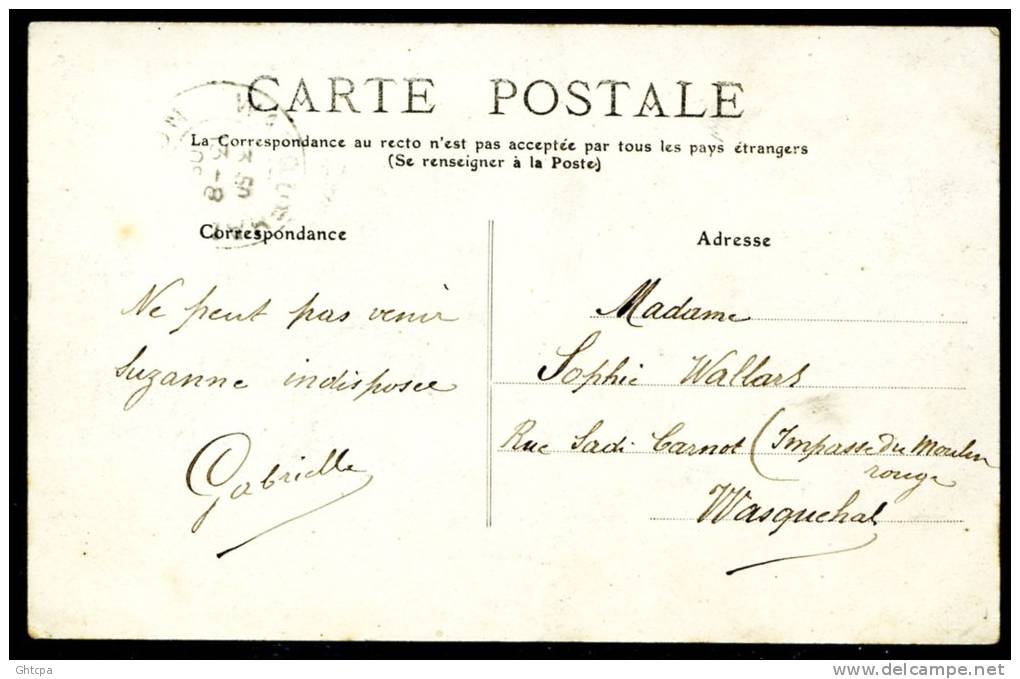 CARTE POSTALE
La Correspondance au recto n'est pas acceptée par tous les pays étrangers
(Se renseigner à la Poste)
Correspondance
Ne peut pas venir
Suzanne indisposée
Gabrielle
Adresse
Madame
Sophie Wallart
Rue Sadi Carnot (Impasse du Moulin
rouge
Wasquehal
Ghtcpa
delcampe.net